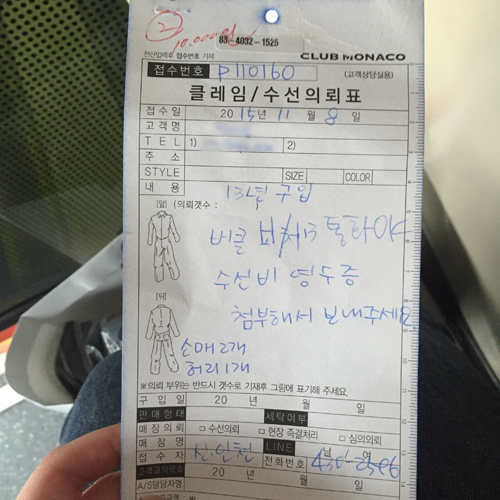 ②
10,000원
83-4032-1525
전산입력후 접수번호 기재
CLUB MONACO
접수번호 P110160 (고객상담실용)
클레임/수선의뢰표
접수일 2015년 11월 8일
고객명
TEL 1) 2)
주소
STYLE SIZE COLOR
내용 13년 구입
[앞] (의뢰갯수 :
버클 통화OK
수선비 영수증
첨부해서 보내주세요.
[뒤]
소매 2개
허리 1개
※의뢰 부위는 반드시 갯수로 기재후 그림에 표기해 주세요.
구입일 20 년 월 일
판매형태 세탁여부
매장의뢰 □ 수선의뢰 □ 현장 즉결처리 □ 심의의뢰
매장명 LINE 남 / 여
접수자 신.인천 전화번호 430-2506
고객과의약속 20 년 월 일
A/S담당자명